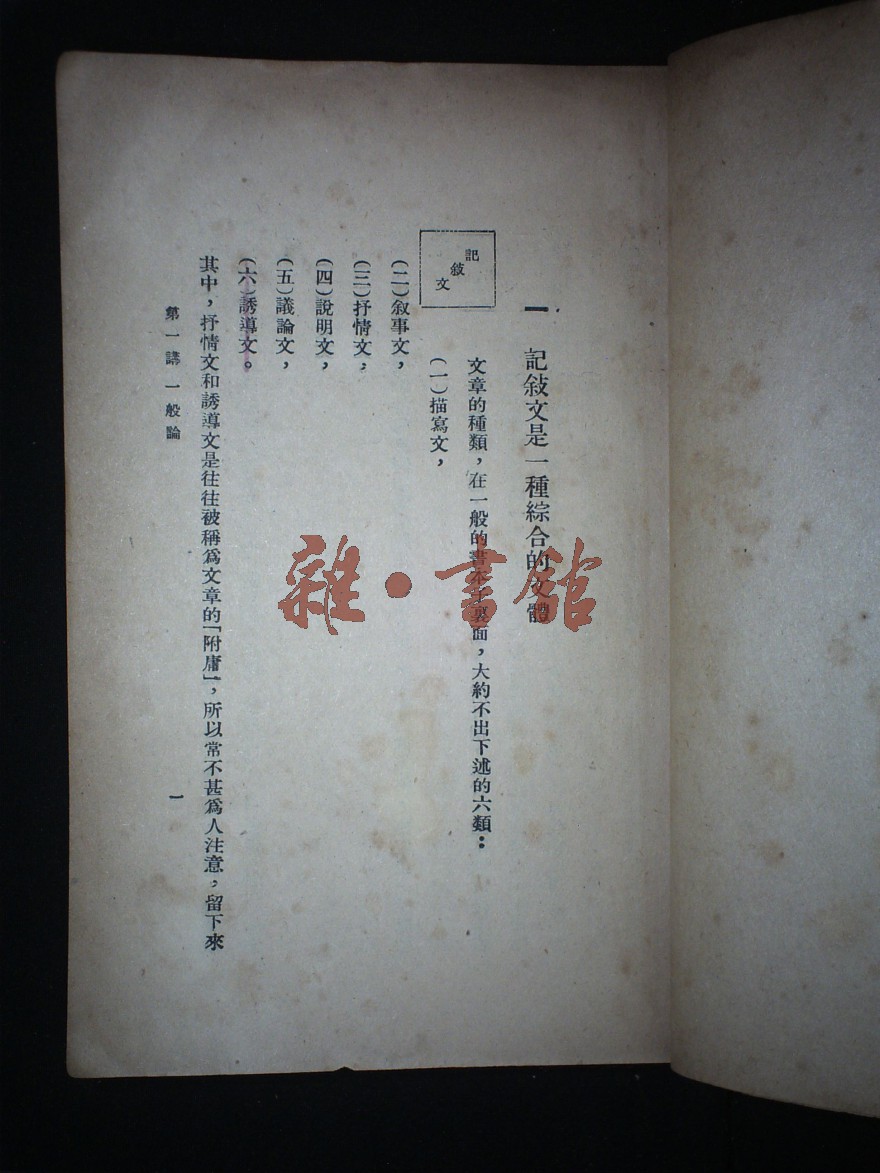 一 記敍文是一種綜合的文體
文章的種類，在一般的書本子裏面，大約不出下述的六類：
記敍文
（一）描寫文，
（二）叙事文，
（三）抒情文，
（四）說明文，
（五）議論文，
（六）誘導文。
其中，抒情文和誘導文是往往被稱爲文章的「附庸」，所以常不甚爲人注意，留下來
第一講 一般論
一
雜·書館